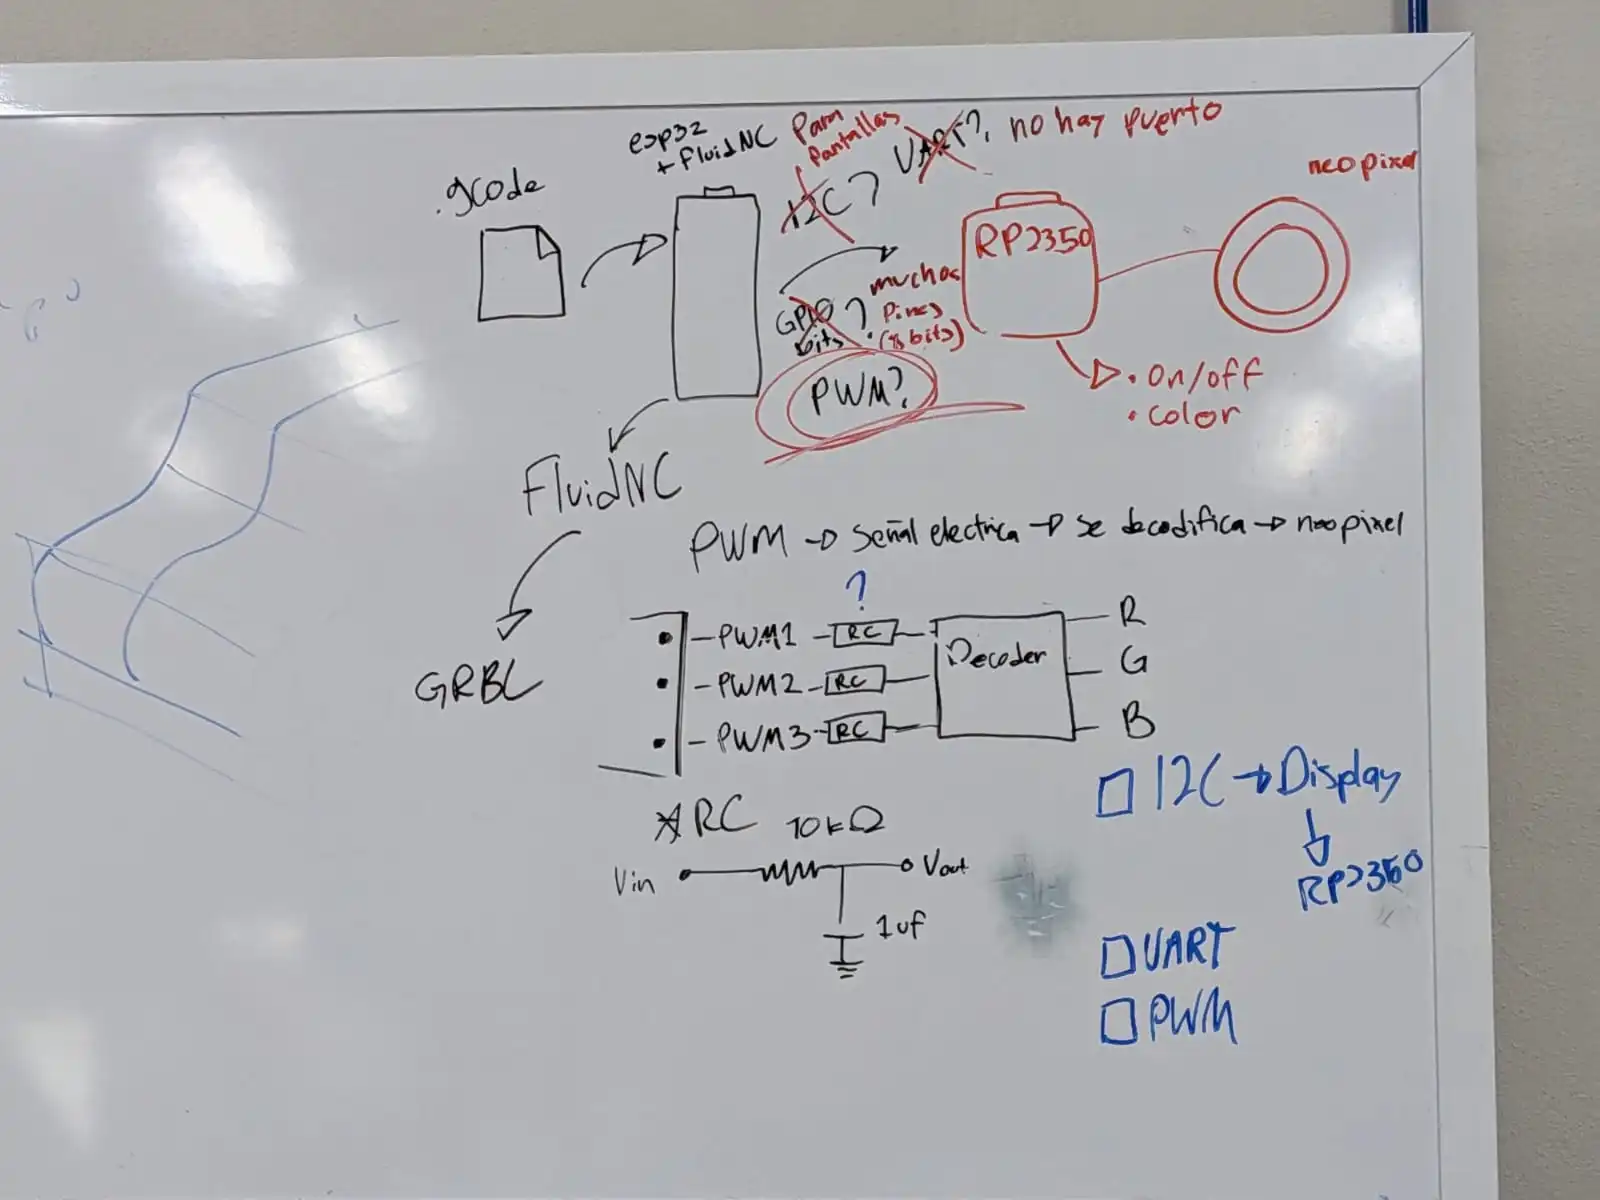 esp32
+ FluidNC
Para
Pantallas
UART?, no hay puerto
neopixel
.gcode
I2C?
RP2350
GPIO
bits ?
muchos
Pines
(8 bits)
PWM?
• On/off
• color
FluidNC
PWM → señal electrica → se decodifica → neopixel
?
GRBL
• -PWM1 - RC
• -PWM2 - RC
• -PWM3- RC
Decoder
R
G
B
I2C → Display
RP2350
* RC 10kΩ
Vin
Vout
1uf
UART
PWM